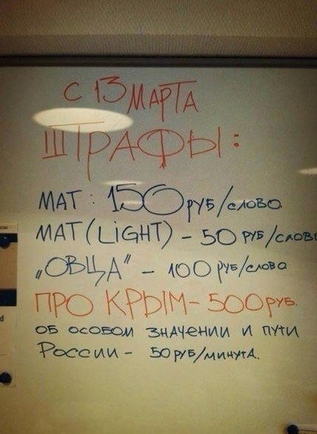 С 13 МАРТА
ШТРАФЫ:
МАТ: 150 РУБ/СЛОВО
МАТ (LIGHT) - 50 РУБ/СЛОВО
„ОВЦА" - 100 РУБ/СЛОВО
ПРО КРЫМ - 500 РУБ.
ОБ ОСОБОМ ЗНАЧЕНИИ И ПУТИ
РОССИИ - 50 РУБ/МИНУТА.